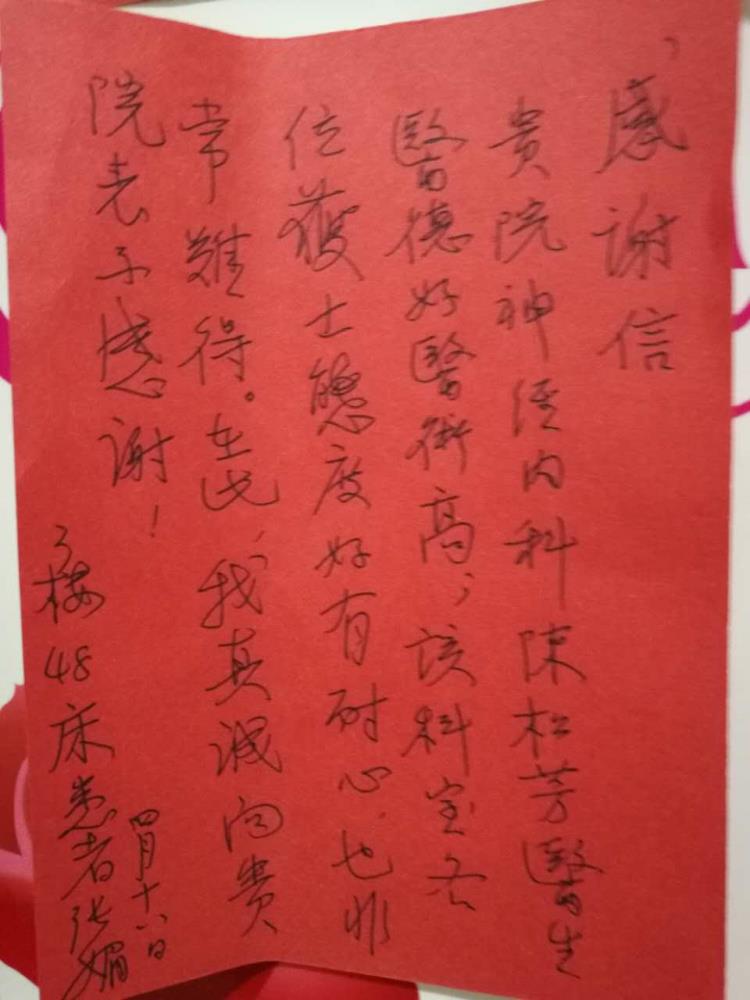 感谢信
贵院神经内科陳松芳醫生
醫德好醫術高,该科室各
位獲士態度好有耐心,也非
常難得。在此,我真诚向贵
院表示感谢!
3楼48床患者张媚
四月十八日